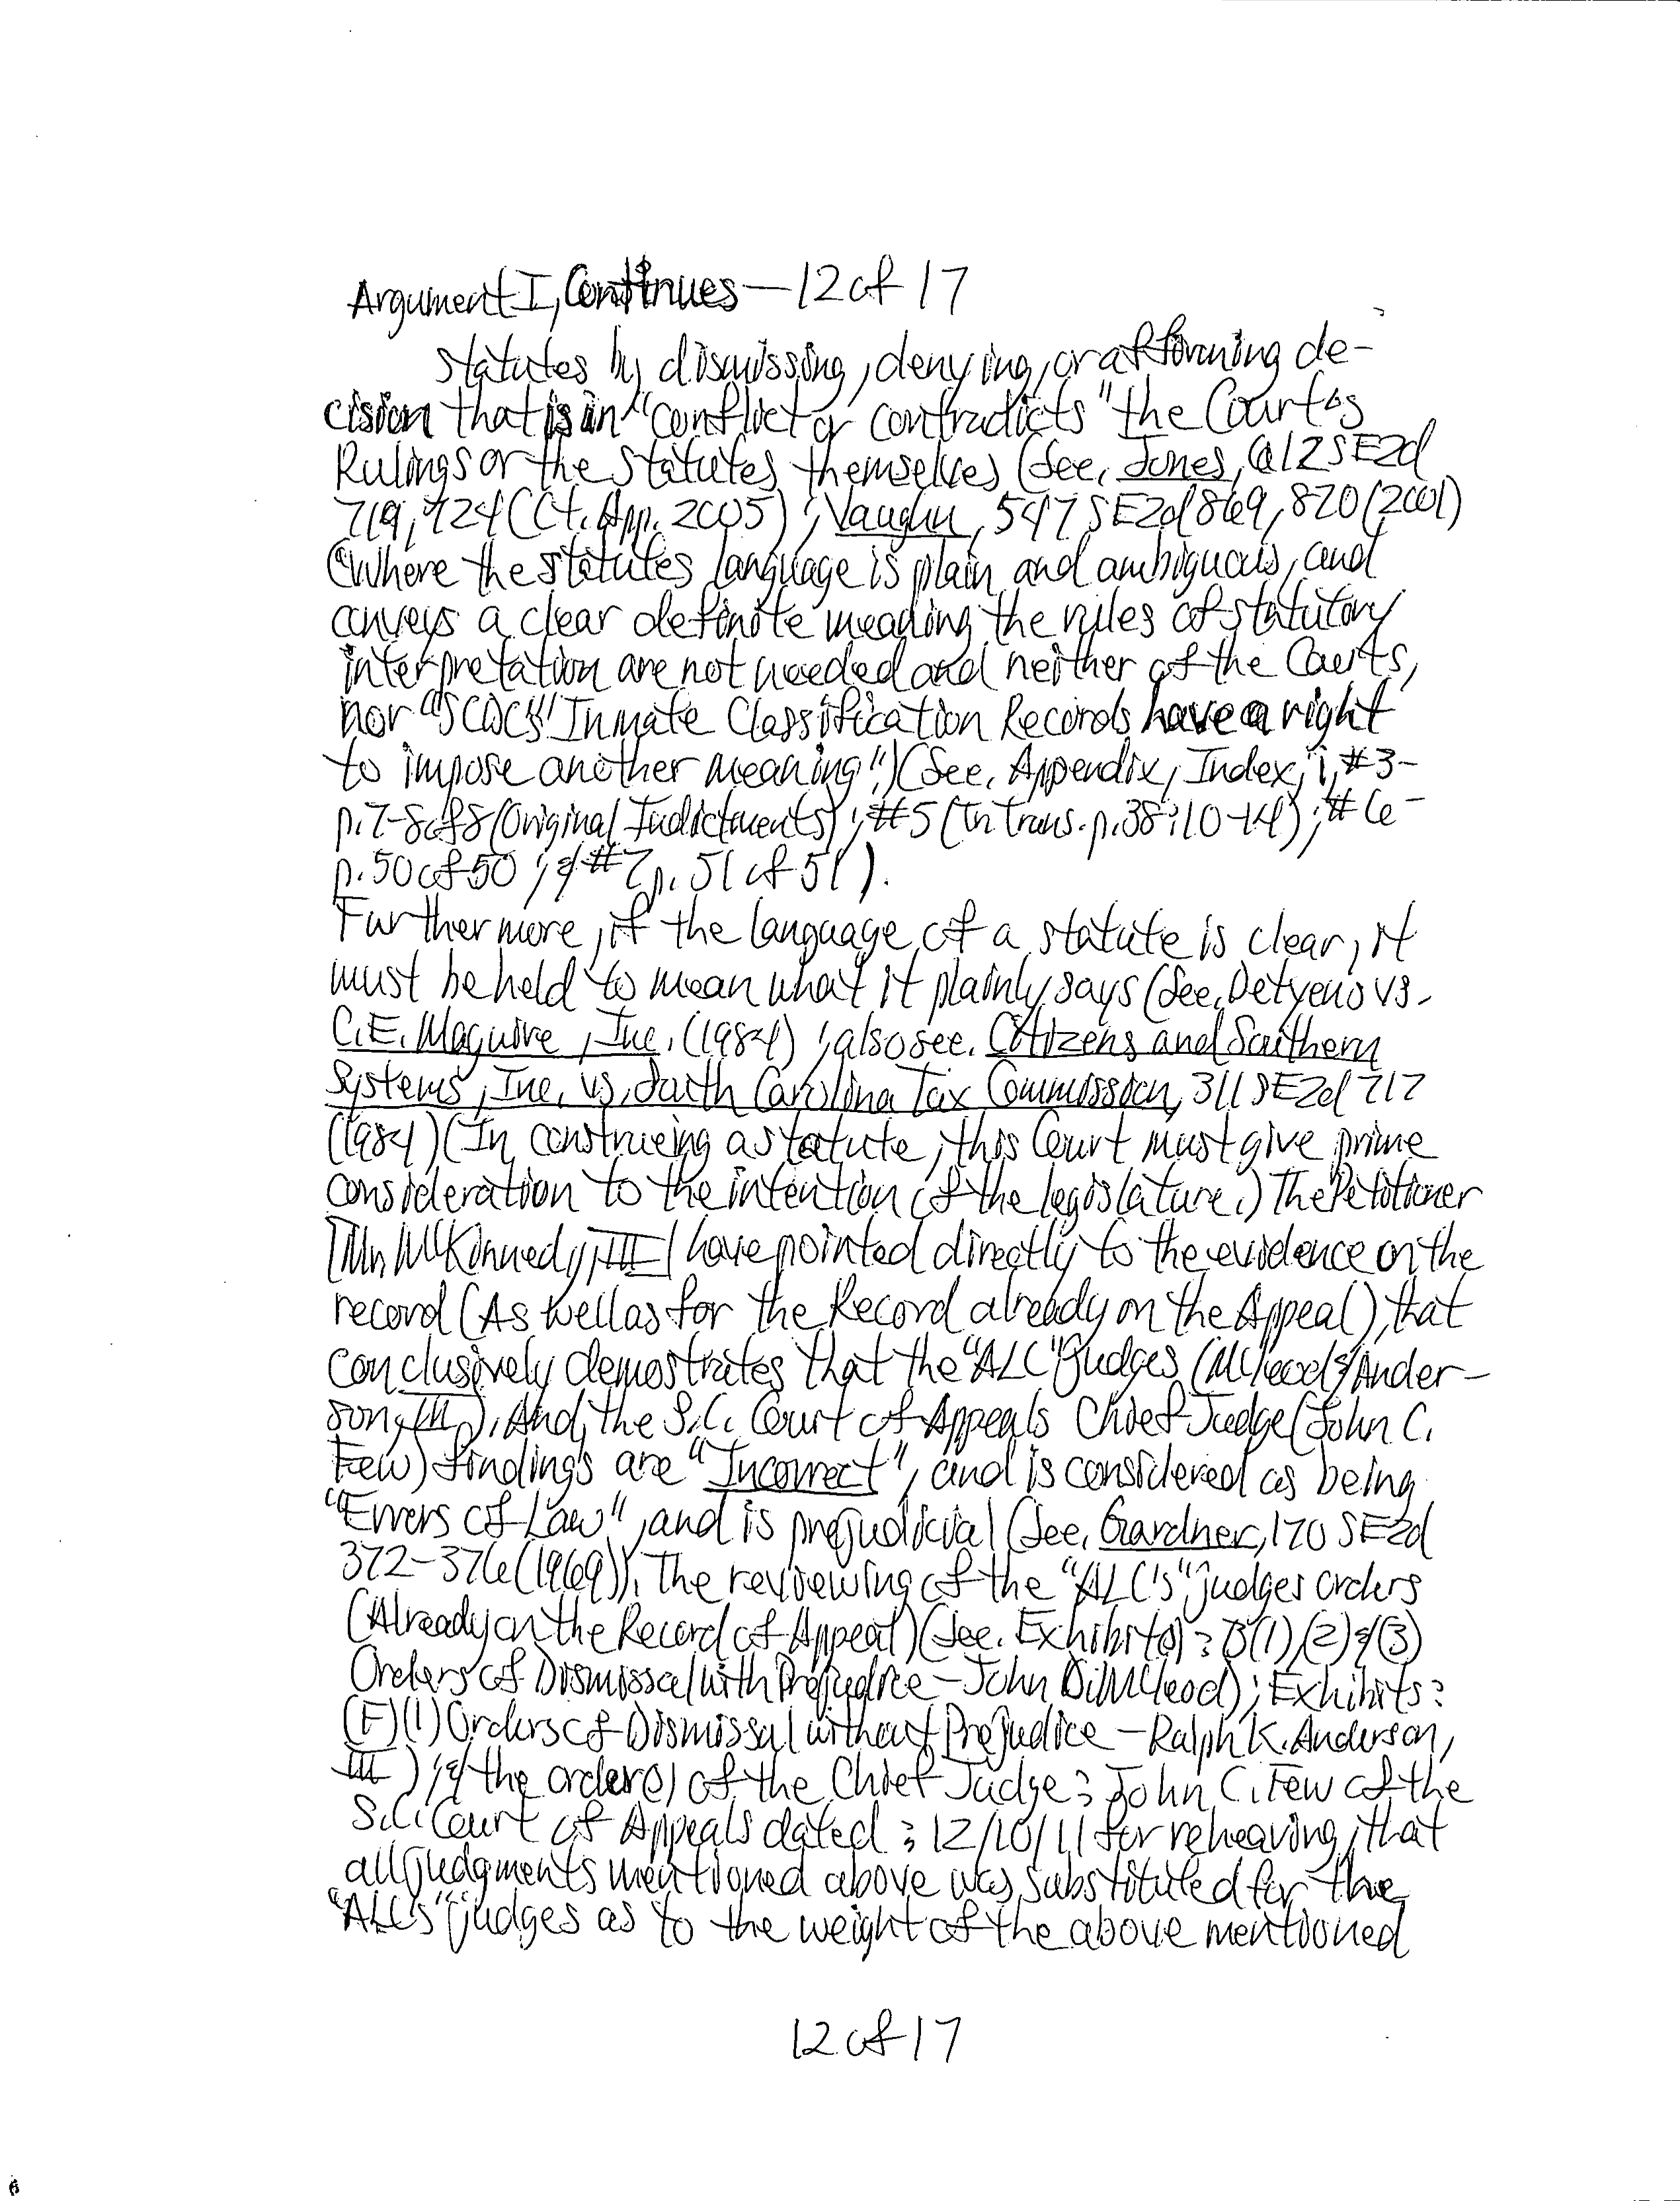 Argument I, Continues — 12 of 17
statutes by dismissing, denying, or affirming de-
cision that is in "conflict or contradicts" the Court's
Rulings or the statutes themselves (See, Jones, 612 SE2d
719, 724 (Ct. App. 2005); Vaughn, 547 SE2d 869, 870 (2001)
("Where the statutes language is plain and ambiguous, and
conveys a clear definite meaning the rules of statutory
interpretation are not needed and neither of the Courts,
nor "SCDC's" Inmate Classification Records have a right
to impose another meaning".) (See, Appendix, Index, i, #3-
p. 7-8 of 8 (Original Indictments); #5 (Tr. Trans. p. 38:10-14); #6-
p. 50 of 50; & #7 p. 51 of 51).
Furthermore, if the language of a statute is clear, it
must be held to mean what it plainly says (See, Detyens vs.
C.E. Maguire, Inc. (1984); also see, Citizens and Southern
Systems, Inc. vs. South Carolina Tax Commission, 311 SE2d 717
(1984) (In construeing a statute, this Court must give prime
consideration to the intention of the legislature.) The Petitioner
[Mr. McKinnedy, III] have pointed directly to the evidence on the
record (As well as for the Record already on the Appeal), that
conclusively demostrates that the "ALC" Judges (McLeod & Ander-
son, III), And, the S.C. Court of Appeals Chief Judge (John C.
Few) findings are "Incorrect", and is considered as being
"Errors of Law", and is prejudicial (See, Gardner, 170 SE2d
372-376 (1969)). The reviewing of the "ALC's" judges orders
(Already on the Record of Appeal) (See, Exhibit(s): B(1), (2) & (3)
Orders of Dismissal with Prejudice — John D. McLeod); Exhibits:
(F)(1) Orders of Dismissal without Prejudice — Ralph K. Anderson,
III); & the order(s) of the Chief Judge: John C. Few of the
S.C. Court of Appeals dated: 12/10/11 for rehearing, that
all judgments mentioned above was substituted for the
"ALC's" judges as to the weight of the above mentioned
12 of 17